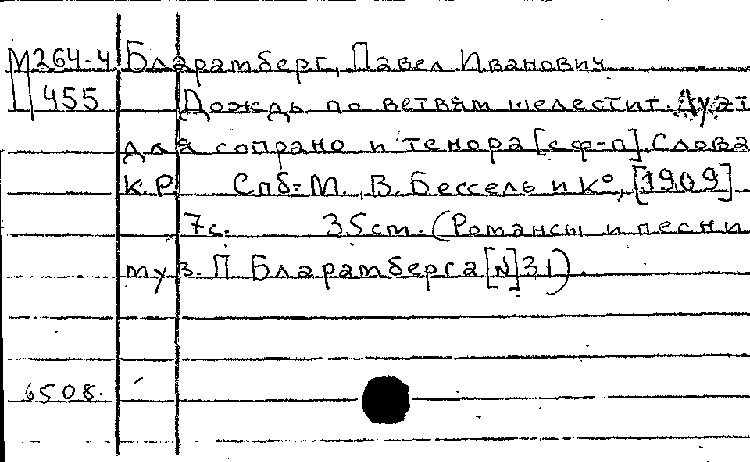 М264-4 Бларамберг, Павел Иванович
455 Дождь по ветвям шелестит. Дуэт
для сопрано и тенора [с ф-п]. Слова
К.Р. Спб-М., В. Бессель и Кº, [1909]
7с. 35см. (Романсы и песни
муз. П Бларамберга [N]31)
6508.